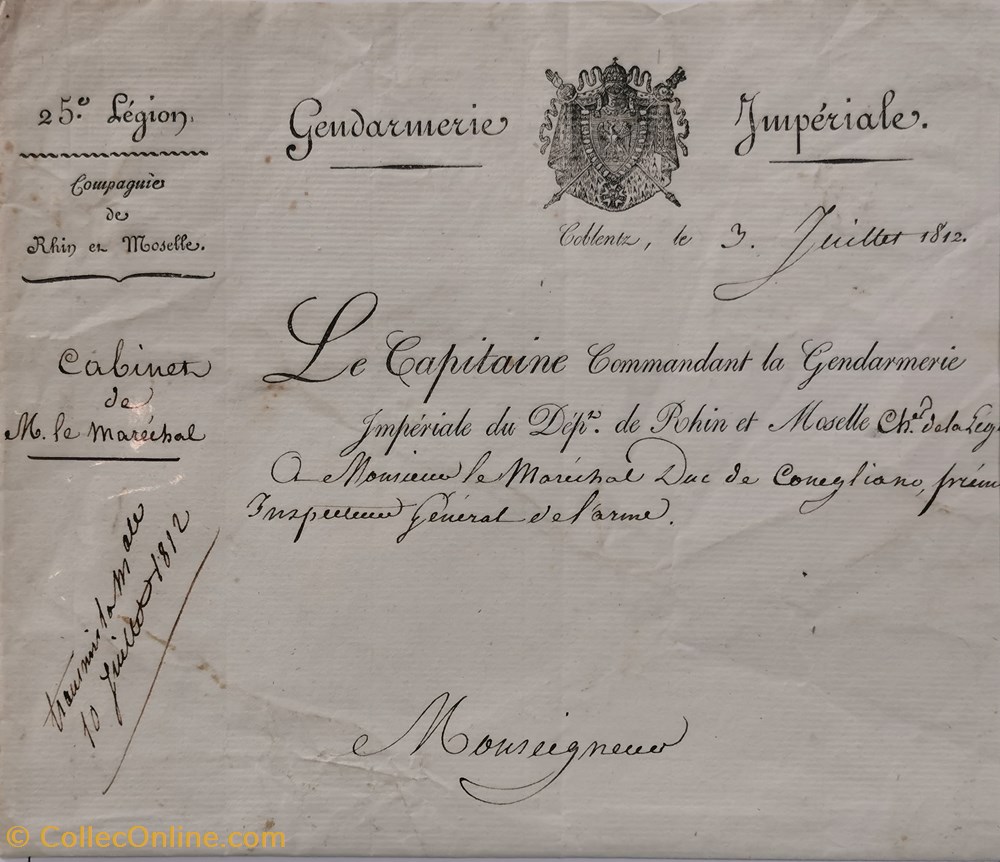 25.e Légion,
Gendarmerie Impériale.
Compagnie
de
Rhin et Moselle.
Coblentz, le 3. Juillet 1812.
Cabinet
de
M. le Maréchal
Le Capitaine Commandant la Gendarmerie
Impériale du Dép.t de Rhin et Moselle Ch.er de la Lég
A Monsieur le Maréchal Duc de Conegliano, prém
Inspecteur Général de l'arme.
transmis la
10 Juillet 1812
Monseigneur
© CollecOnline.com